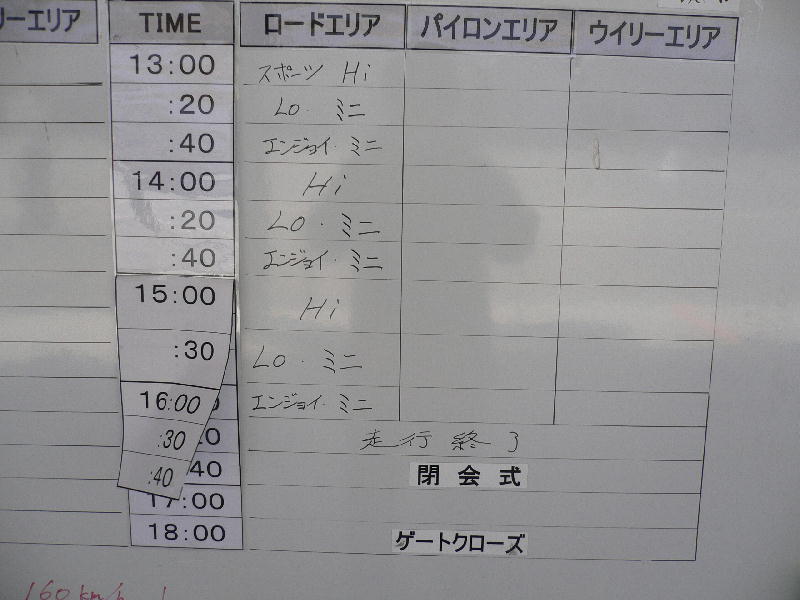 リーエリア TIME ロードエリア パイロンエリア ウイリーエリア
13:00 スポーツ Hi
:20 Lo・ミニ
:40 エンジョイ・ミニ
14:00 Hi
:20 Lo・ミニ
:40 エンジョイ・ミニ
15:00 Hi
:30 Lo・ミニ
16:00 エンジョイ・ミニ
:30 走行終了
:40 40 閉会式
17:00
18:00 ゲートクローズ
160km/h